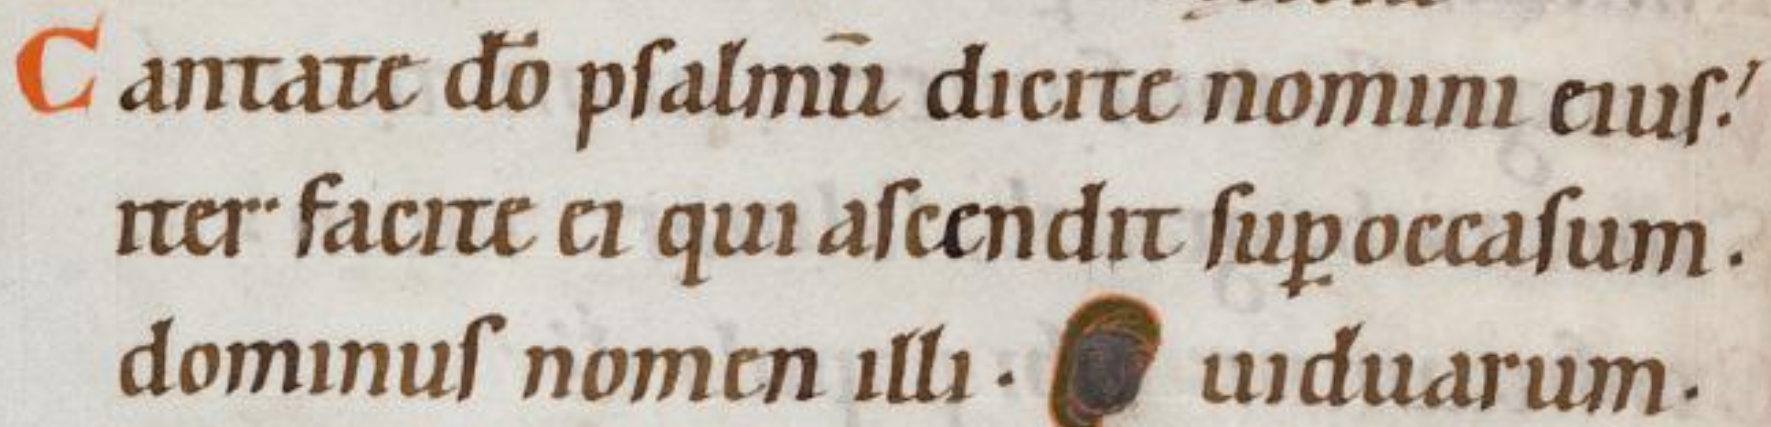 Cantate dō pſalmū dicite nomini eiuſ.
iter facite ei qui aſcendit ſuꝑ occaſum.
dominuſ nomen illi. uiduarum.